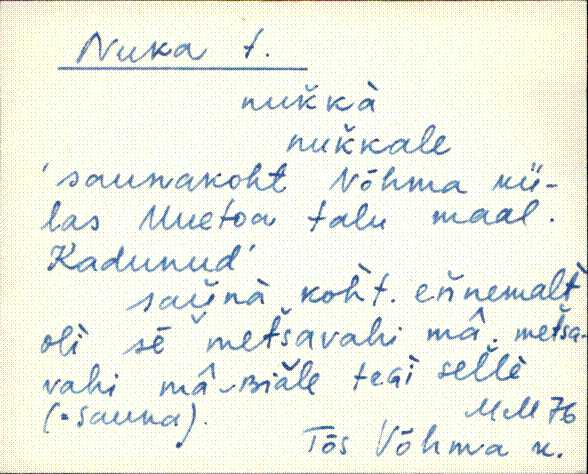 Nuka t.
nukkà
nukkale
'saunakoht Võhma kü-
las Uuetoa talu maal.
Kadunud'
saũnà kòht. eñnemalt
oli sē metšavahi mâ. metšà-
vahi mâ‿ᴃiä̆le teGi sellè
(=sauna).
MM 76
Tõs Võhma k.